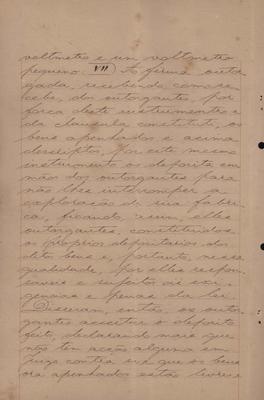 voltmetro e um voltmetro
pequeno. VII) A firma outor
gada, recebendo como re-
cebe, dos outorgantes, por
força deste instrumento e
da clausula constituti, os
bens apenhados e acima
descriptos, por este mesmo
instrumento os deposita em
mão dos outorgantes para
não lhes interromper a
exploração de sua fabri-
ca, ficando, assim, elles
outorgantes, constituidos
os proprios depositarios dos
ditos bens e, portanto, nessa
qualidade, por elles respon-
saveis e sujeitos ás exi-
gencias e penas da lei.
Disseram, então, os outor-
gantes acceitar o deposito
feito, declarando mais que
não tem acção alguma em
Juizo contra si e que os bens
ora apenhados estão livres e